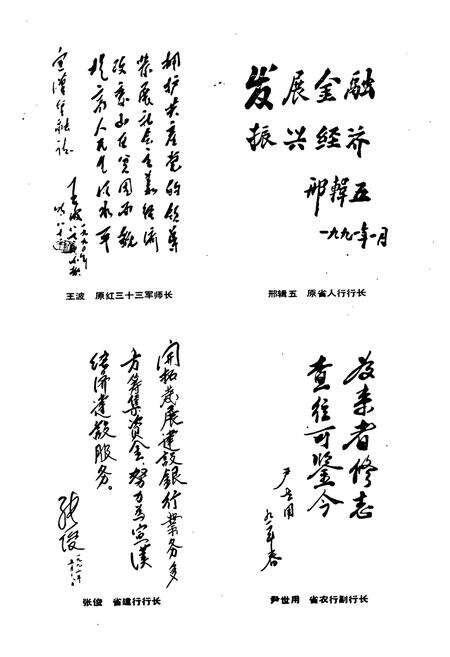 拥护共产党的领导
发展社会主义经济
改变山区贫困面貌
提高人民生活水平
宣漢金融志
王波
王波 原红三十三军师长
发展金融
振兴经济
邢辑五
一九九一年一月
邢辑五 原省人行行长
開拓发展建設銀行業务多
方筹集资金,努力为宣漢
经济建設服务。
张俊
张俊 省建行行长
为来者修志
查往可鉴今
尹世用
九一年春
尹世用 省农行副行长